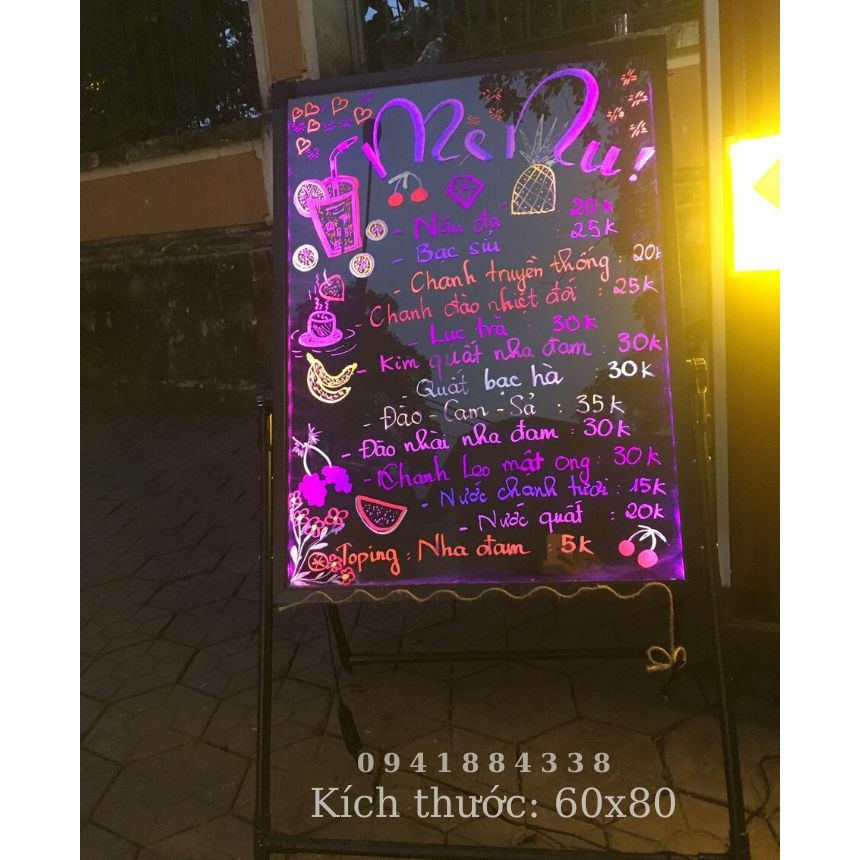 MeNu!
- Nâu đá : 20k
- Bạc sỉu : 25k
- Chanh truyền thống : 20k
- Chanh đào nhiệt đới : 25k
- Lục trà : 30k
- Kim quất nha đam : 30k
- Quất bạc hà : 30k
- Đào - Cam - Sả : 35k
- Đào nhài nha đam : 30k
- Chanh Leo mật ong : 30k
- Nước chanh tươi : 15k
- Nước quất : 20k
Toping : Nha đam : 5k
0941884338
Kích thước: 60x80